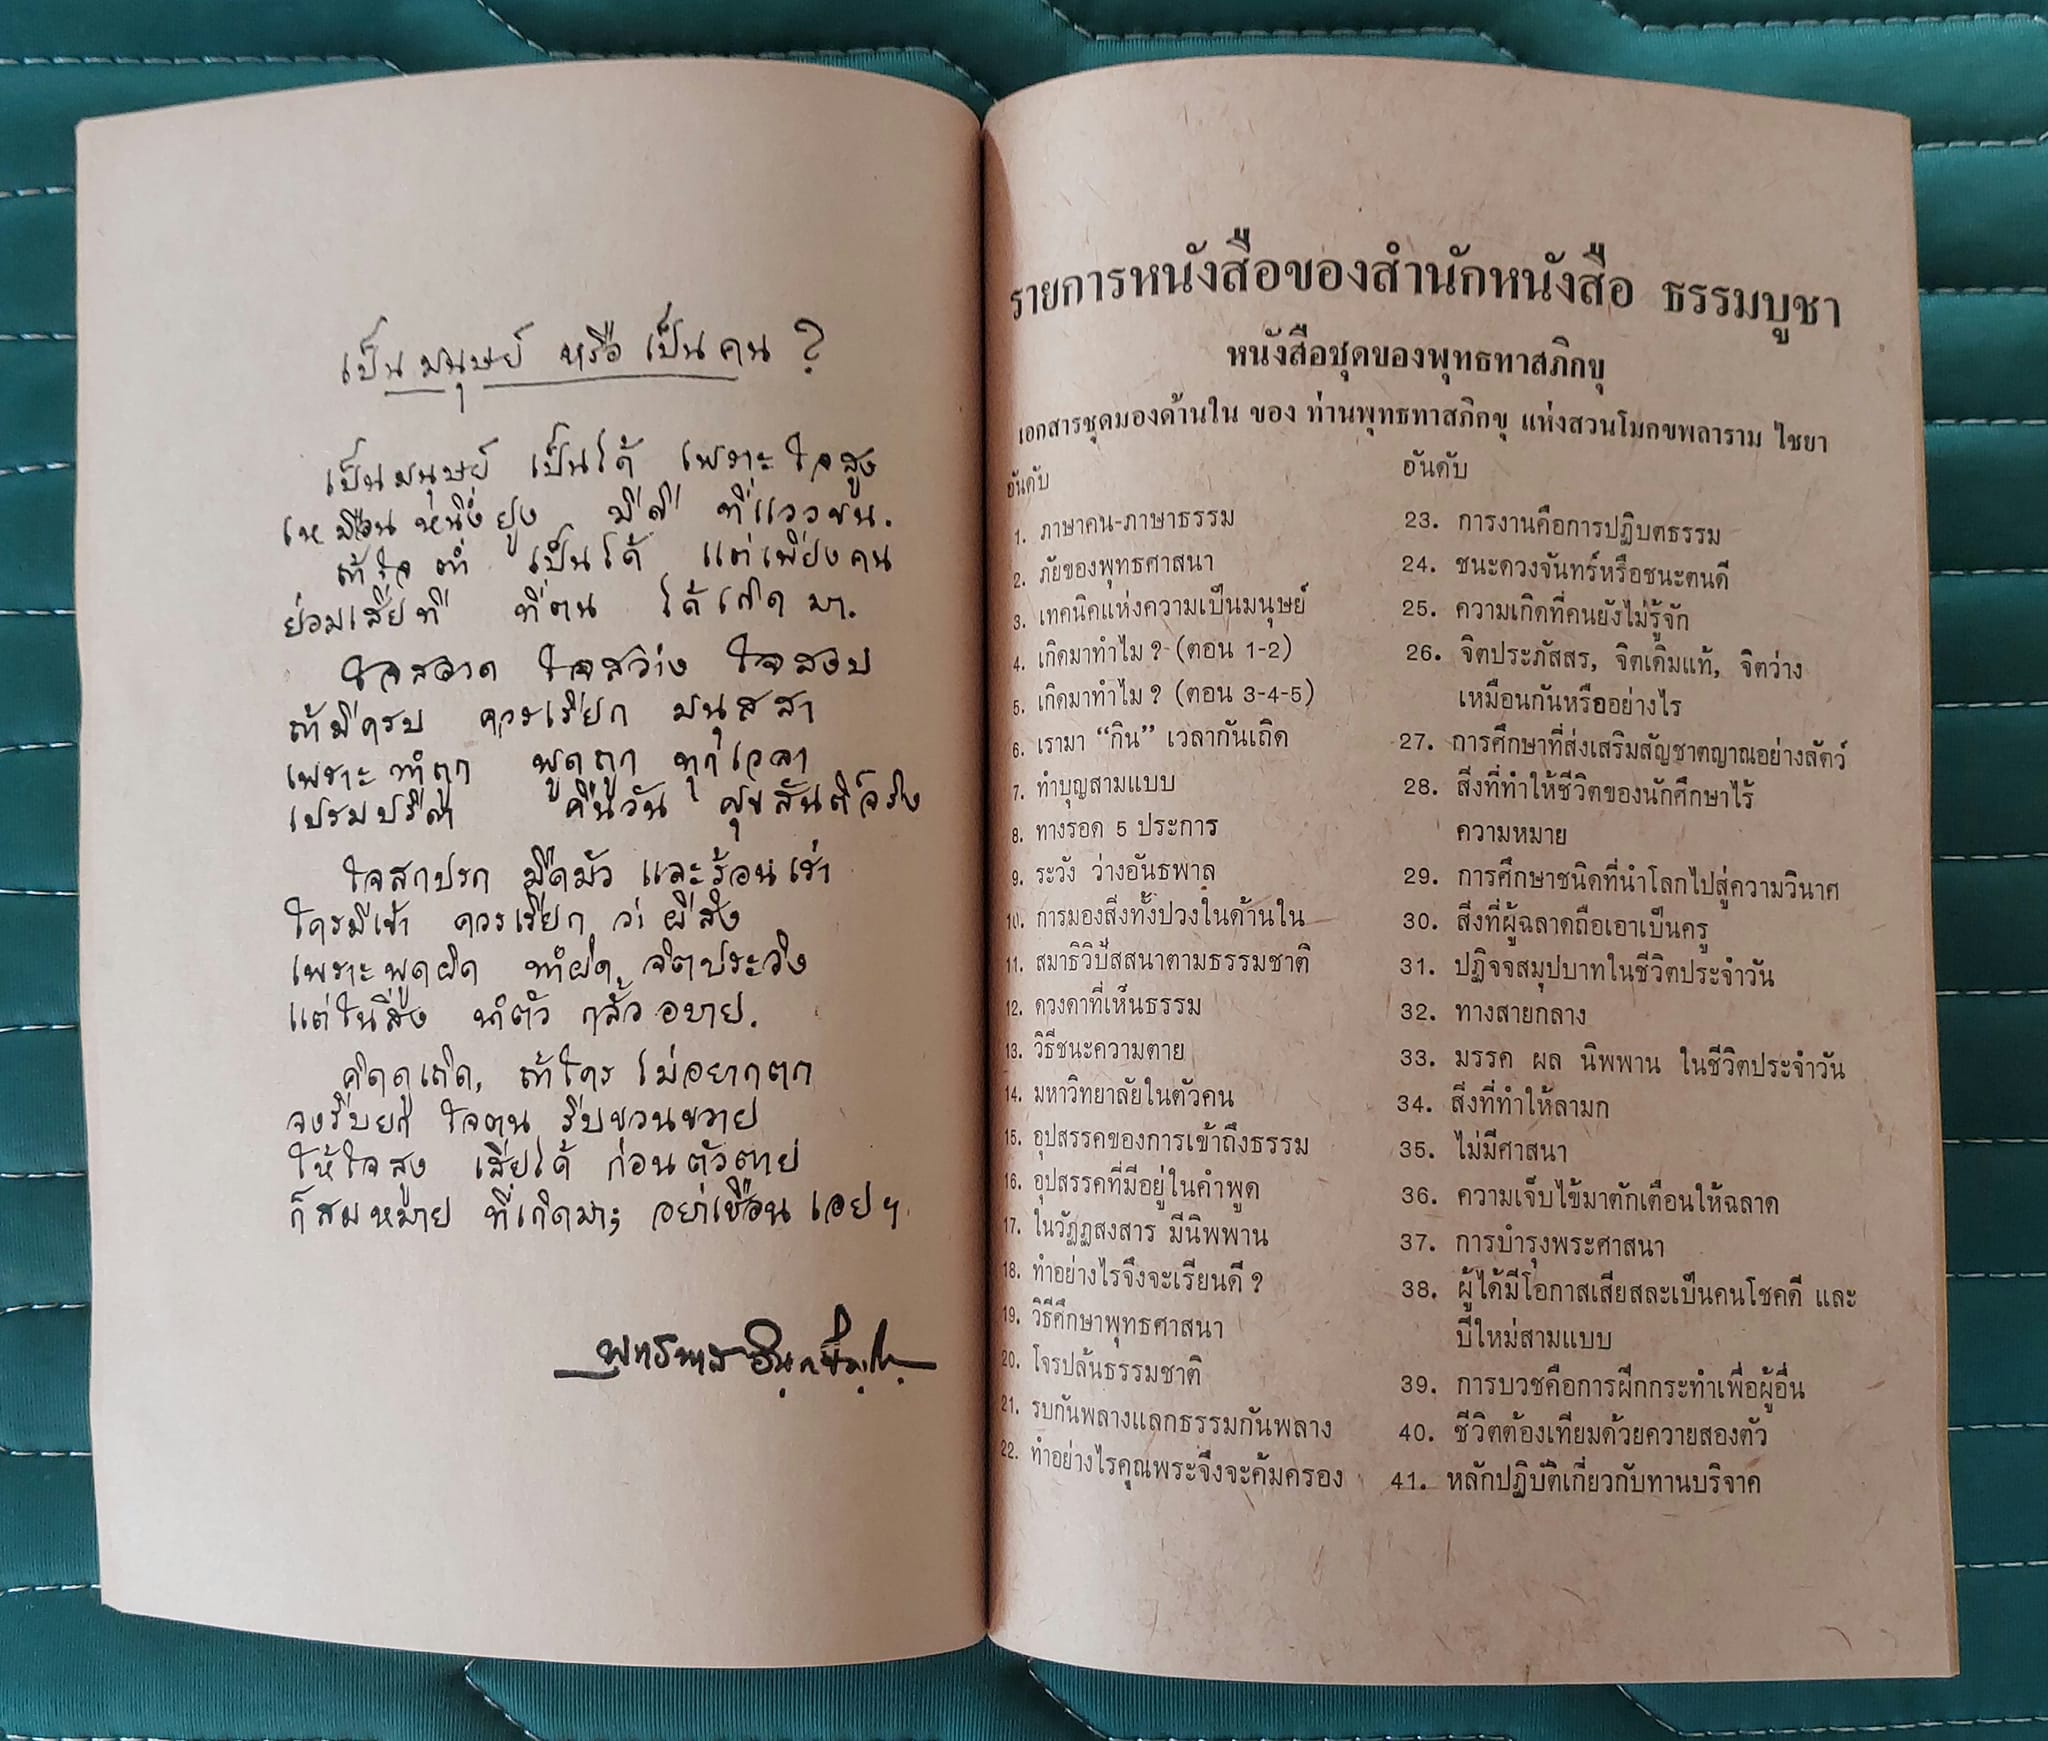 เป็นมนุษย์ หรือ เป็นคน ?
เป็นมนุษย์ เป็นได้ เพราะใจสูง
เหมือนหนึ่งยูง มีดี ที่แววขน.
ถ้าใจต่ำ เป็นได้ แต่เพียงคน
ย่อมเสียที ที่ตน ได้เกิดมา.
ใจสอาด ใจสว่าง ใจสงบ
ถ้ามีครบ ควรเรียก มนุสสา
เพราะทำถูก พูดถูก ทุกเวลา
เปรมปรีดา คืนวัน ศุขสันติ์จริง
ใจสกปรก มืดมัว และร้อนเร่า
ใครมีเข้า ควรเรียก ว่า ผีสิง
เพราะพูดผิด ทำผิด จิตประวิง
แต่ในสิ่ง นำตัว กลั้วอบาย.
คิดดูเถิด, ถ้าใคร ไม่อยากตก
จงรีบยก ใจตน รีบขวนขวาย
ให้ใจสูง เสียได้ ก่อนตัวตาย
ก็สมหมาย ที่เกิดมา; อย่าเชือน เอย ฯ
พุทธทาส อินฺทปญฺโญ
รายการหนังสือของสำนักหนังสือ ธรรมบูชา
หนังสือชุดของพุทธทาสภิกขุ
เอกสารชุดมองด้านใน ของ ท่านพุทธทาสภิกขุ แห่งสวนโมกขพลาราม ไชยา
อันดับ
1. ภาษาคน-ภาษาธรรม
2. ภัยของพุทธศาสนา
3. เทคนิคแห่งความเป็นมนุษย์
4. เกิดมาทำไม ? (ตอน 1-2)
5. เกิดมาทำไม ? (ตอน 3-4-5)
6. เรามา “กิน” เวลากันเถิด
7. ทำบุญสามแบบ
8. ทางรอด 5 ประการ
9. ระวัง ว่างอันธพาล
10. การมองสิ่งทั้งปวงในด้านใน
11. สมาธิวิปัสสนาตามธรรมชาติ
12. ดวงตาที่เห็นธรรม
13. วิธีชนะความตาย
14. มหาวิทยาลัยในตัวคน
15. อุปสรรคของการเข้าถึงธรรม
16. อุปสรรคที่มีอยู่ในคำพูด
17. ในวัฏฏสงสาร มีนิพพาน
18. ทำอย่างไรจึงจะเรียนดี ?
19. วิธีศึกษาพุทธศาสนา
20. โจรปล้นธรรมชาติ
21. รบกันพลางแลกธรรมกันพลาง
22. ทำอย่างไรคุณพระจึงจะค้มครอง
อันดับ
23. การงานคือการปฏิบัตธรรม
24. ชนะดวงจันทร์หรือชนะตนดี
25. ความเกิดที่คนยังไม่รู้จัก
26. จิตประภัสสร, จิตเดิมแท้, จิตว่าง
เหมือนกันหรืออย่างไร
27. การศึกษาที่ส่งเสริมสัญชาตญาณอย่างสัตว์
28. สิ่งที่ทำให้ชีวิตของนักศึกษาไร้
ความหมาย
29. การศึกษาชนิดที่นำโลกไปสู่ความวินาศ
30. สิ่งที่ผู้ฉลาดถือเอาเป็นครู
31. ปฏิจจสมุปบาทในชีวิตประจำวัน
32. ทางสายกลาง
33. มรรค ผล นิพพาน ในชีวิตประจำวัน
34. สิ่งที่ทำให้ลามก
35. ไม่มีศาสนา
36. ความเจ็บไข้มาตักเตือนให้ฉลาด
37. การบำรุงพระศาสนา
38. ผู้ได้มีโอกาสเสียสละเป็นคนโชคดี และ
ปีใหม่สามแบบ
39. การบวชคือการฝึกกระทำเพื่อผู้อื่น
40. ชีวิตต้องเทียมด้วยควายสองตัว
41. หลักปฏิบัติเกี่ยวกับทานบริจาค